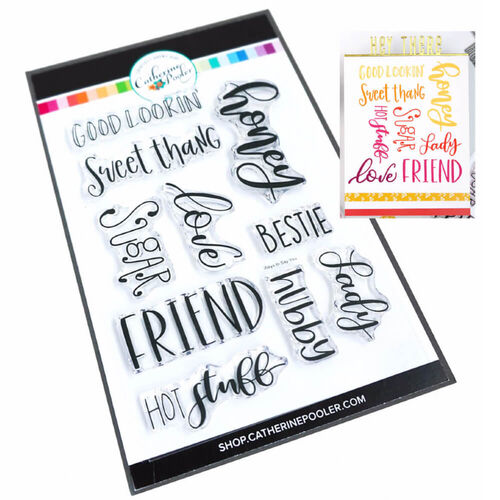 Catherine
Pooler
GOOD LOOKIN'
honey
Sweet THANG
SUGAR
love
BESTIE
Ways to Say You
FRIEND
hubby
lady
HOT stuff
SHOP.CATHERINEPOOLER.COM
HEY THERE
GOOD LOOKIN'
honey
Sweet THANG
HOT stuff
SUGAR
lady
love FRIEND